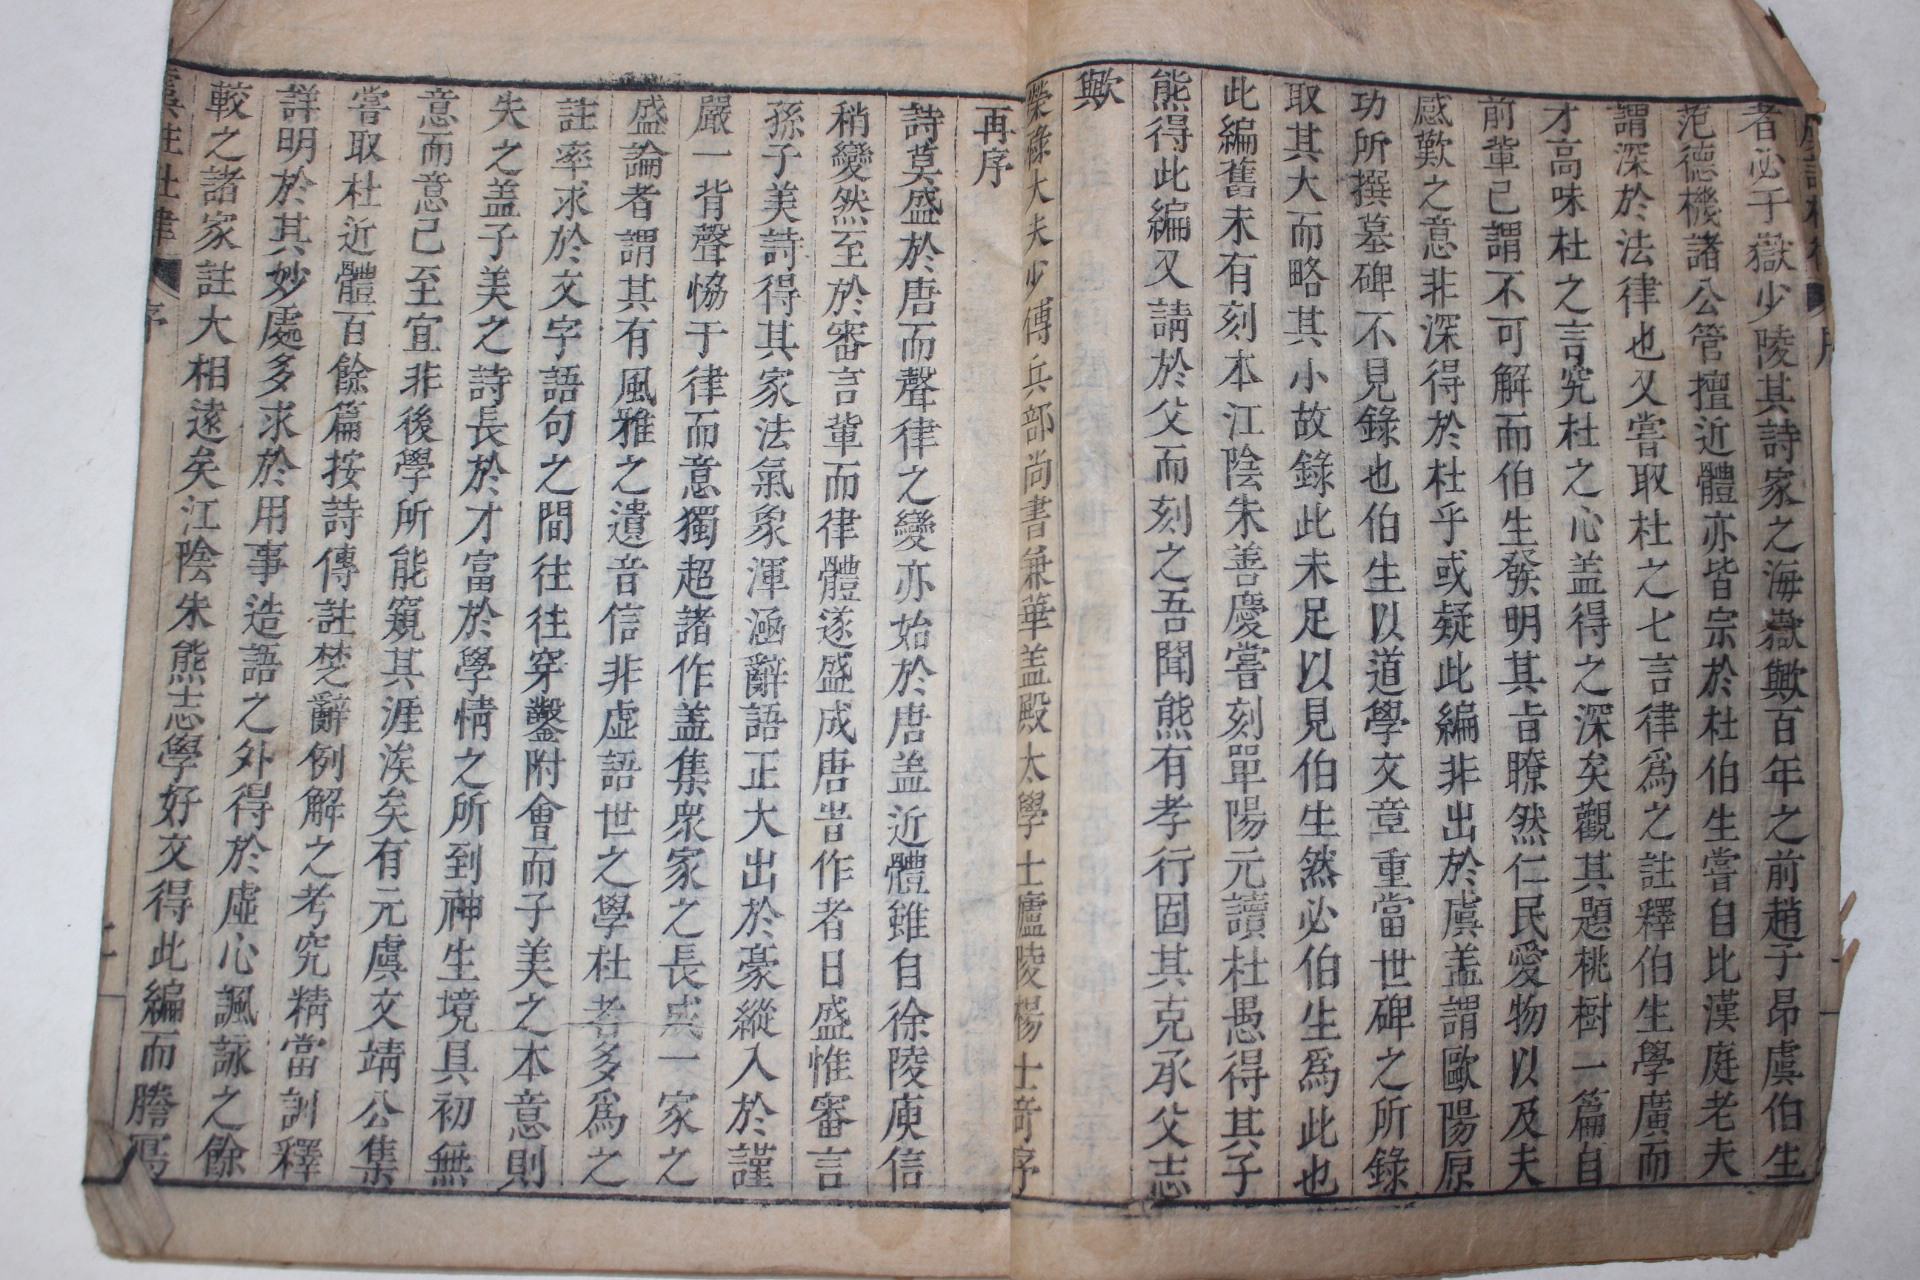 者必于嶽少陵其詩家之海嶽歟百年之前趙子昂虞伯生
范德機諸公管擅近體亦皆宗於杜伯生嘗自比漢庭老夫
謂深於法律也又嘗取杜之七言律爲之註釋伯生學廣而
才高味杜之言究杜之心盖得之深矣觀其題桃樹一篇自
前輩己謂不可解而伯生發明其旨瞭然仁民愛物以及夫
感歎之意非深得於杜乎或疑此編非出於虞盖謂歐陽原
功所撰墓碑不見錄也伯生以道學文章重當世碑之所錄
取其大而略其小故錄此未足以見伯生然必伯生爲此也
此編舊未有刻本江陰朱善慶嘗刻單陽元讀杜愚得其子
熊得此編又請於父而刻之吾聞熊有孝行固其克承父志
歟
榮祿大夫少傅兵部尚書兼華盖殿太學士廬陵楊士奇序
再序
詩莫盛於唐而聲律之變亦始於唐盖近體雖自徐陵庾信
稍變然至於審言輩而律體遂盛成唐昔作者日盛惟審言
孫子美詩得其家法氣象渾涵辭語正大出於豪縱入於謹
嚴一背聲恊于律而意獨超諸作盖集衆家之長或一家之
盛論者謂其有風雅之遺音信非虛語世之學杜者多爲之
註率求於文字語句之間往往穿鑿附會而子美之本意則
失之盖子美之詩長於才富於學情之所到神生境具初無
意而意己至宜非後學所能窺其涯涘矣有元虞文靖公集
嘗取杜近體百餘篇按詩傳註楚辭例解之考究精當訓釋
詳明於其妙處多求於用事造語之外得於虛心諷詠之餘
較之諸家註大相遠矣江陰朱熊志學好文得此編而謄寫
虞註杜律 序